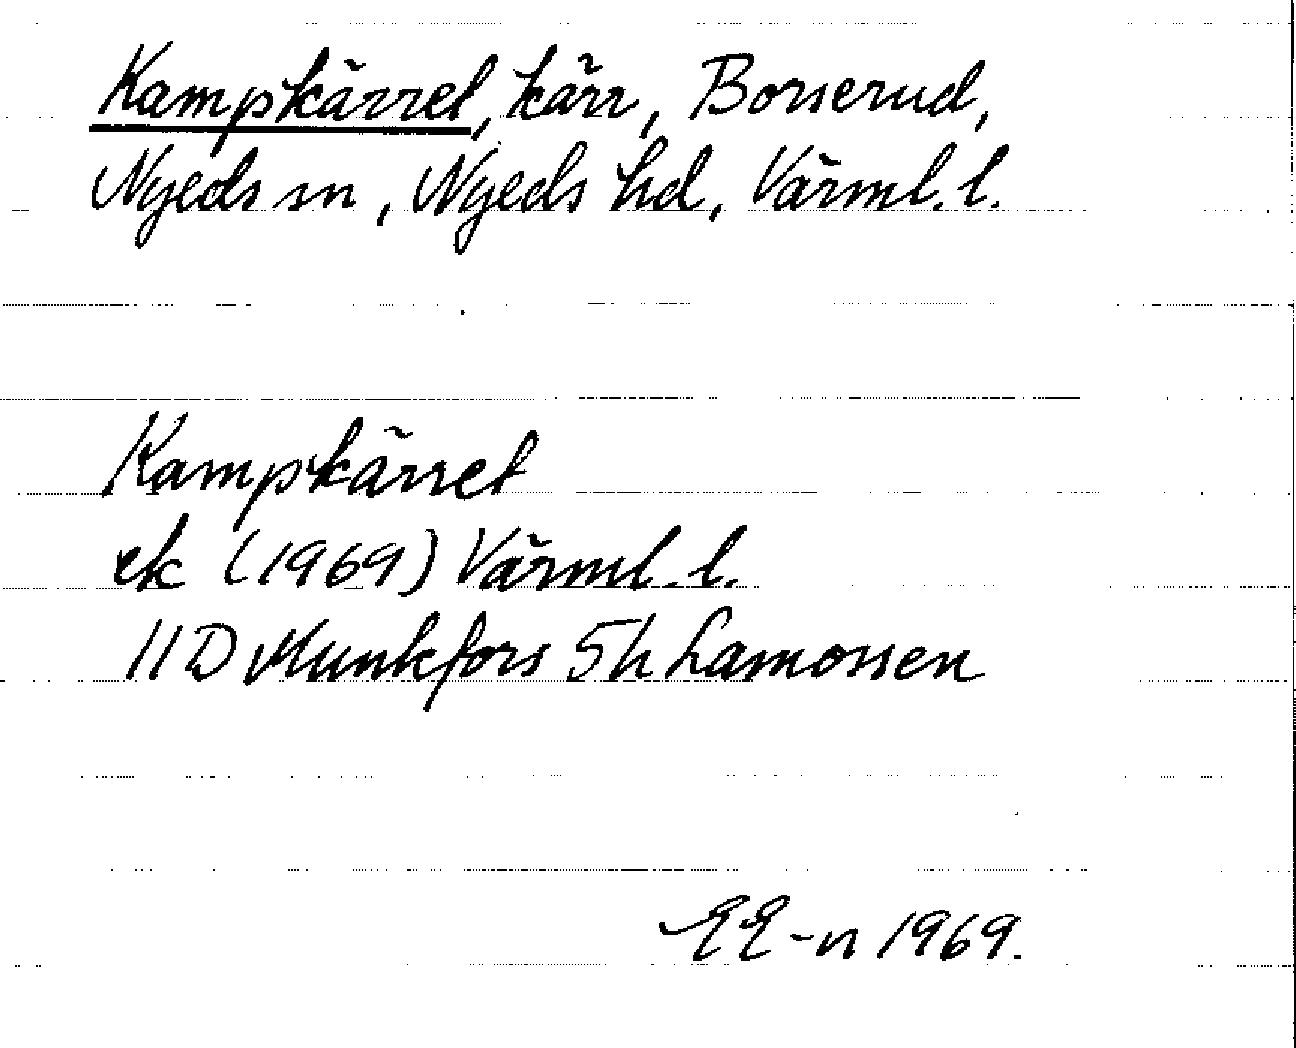 Kampkärret, kärr, Borserud,
Nyeds sn, Nyeds hd, Värml. l.
Kampkärret
ek (1969) Värml. l.
11D Munkfors 5h Lamossen
EE-n 1969.